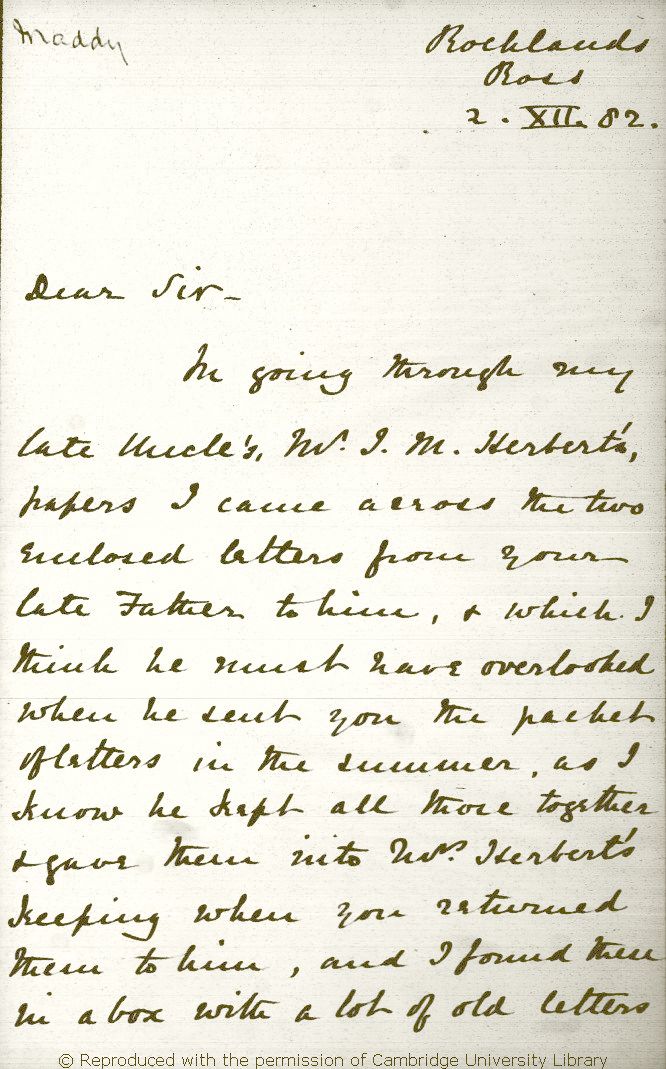 Maddy
Rocklands
Ross
2. XII. 82.
Dear Sir –
In going through my
late Uncle's, Mr. J. M. Herbert's,
papers I came across the two
enclosed letters from your
late Father to him, & which I
think he must have overlooked
when he sent you the packet
of letters in the summer, as I
know he kept all those together
& gave them into Mrs. Herbert's
keeping when you returned
them to him, and I found these
in a box with a lot of old letters
© Reproduced with the permission of Cambridge University Library